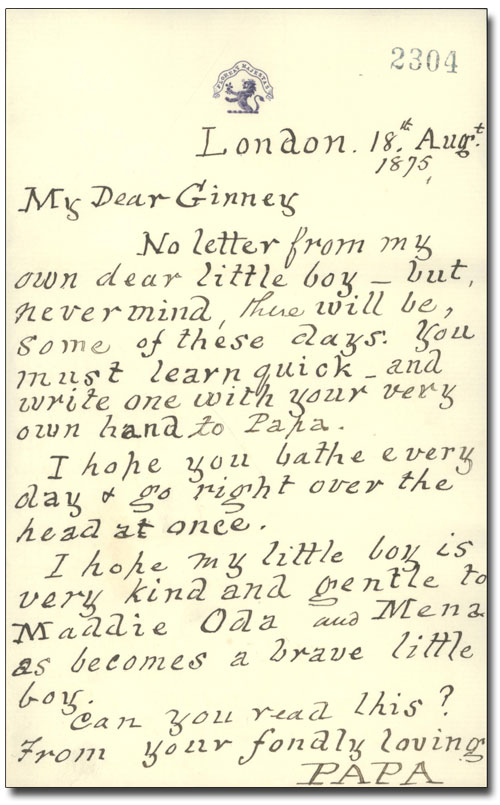 2304
London. 18th Augt.
1875,
My Dear Ginney
No letter from my
own dear little boy – but,
nevermind, there will be,
some of these days. You
must learn quick – and
write one with your very
own hand to Papa.
I hope you bathe every
day & go right over the
head at once.
I hope my little boy is
very kind and gentle to
Maddie Oda and Mena
as becomes a brave little
boy.
Can you read this?
From your fondly loving
PAPA